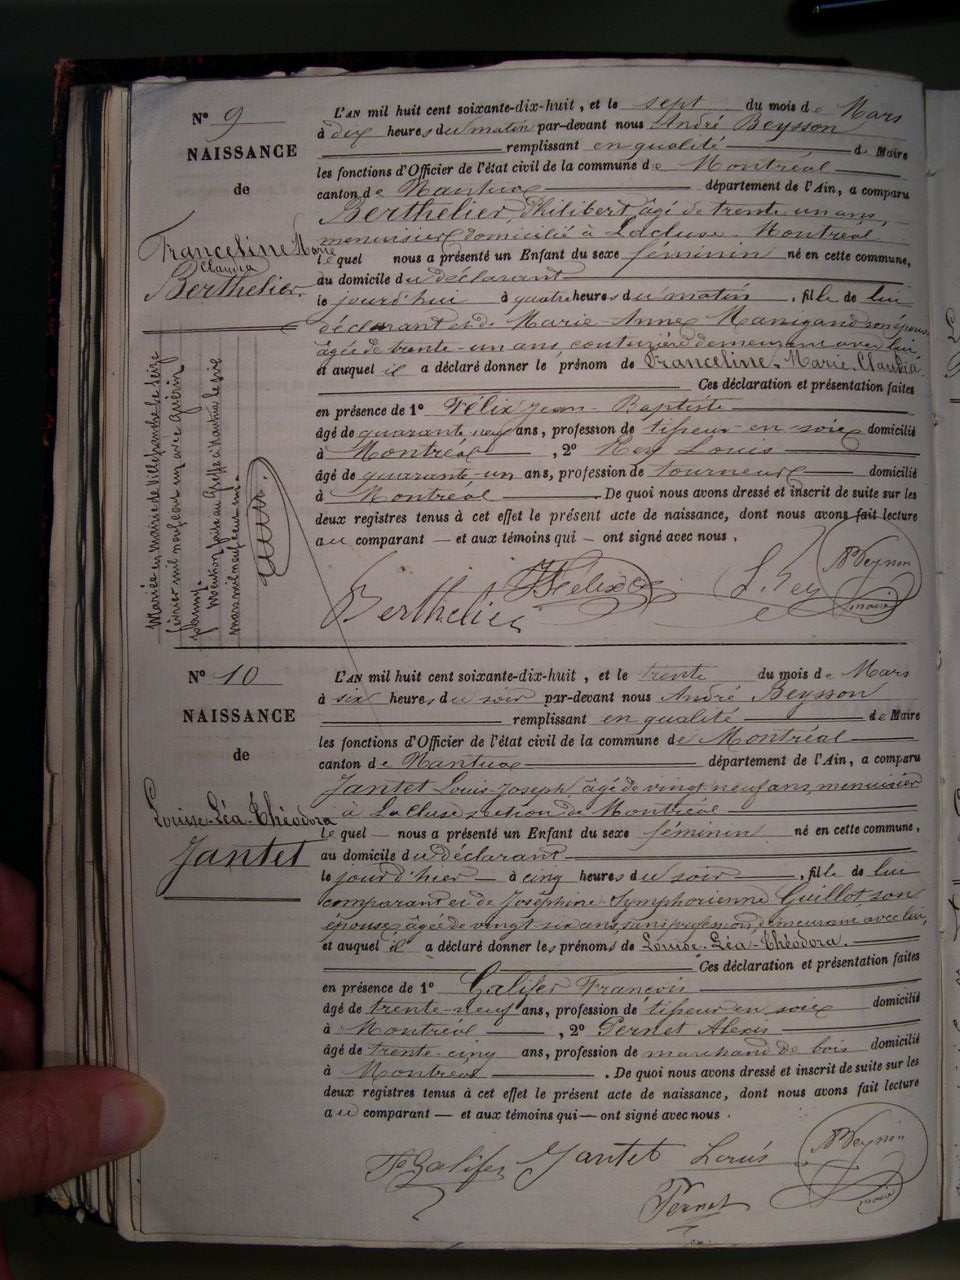 N° 9
NAISSANCE
de
Franceline Marie
Claudia
Berthelier
L'AN mil huit cent soixante-dix-huit, et le sept du mois de Mars
à dix heures du matin par-devant nous André Beysson
remplissant en qualité de Maire
les fonctions d'Officier de l'état civil de la commune de Montréal
canton de Nantua département de l'Ain, a comparu
Berthelier Philibert, âgé de trente un ans,
menuisier domicilié à Lacluse Montréal
lequel nous a présenté un Enfant du sexe féminin né en cette commune,
au domicile du déclarant
le jourd'hui à quatre heures du matin, fille de lui
déclarant et de Marie-Anne Manigand son épouse
âgée de trente-un ans, couturière demeurant avec lui,
et auquel il a déclaré donner le prénom de Franceline, Marie, Claudia
Ces déclaration et présentation faites
en présence de 1° Félix Jean-Baptiste
âgé de quarante neuf ans, profession de tisseur en soie domicilié
à Montréal, 2° Rey Louis
âgé de quarante-un ans, profession de tourneur domicilié
à Montréal De quoi nous avons dressé et inscrit de suite sur les
deux registres tenus à cet effet le présent acte de naissance, dont nous avons fait lecture
au comparant — et aux témoins qui — ont signé avec nous.
Berthelier
L. Rey
maire
Mariée en mairie de Villefranche le seize
février mil neuf cent un avec Guérin
Mention faite au Greffe à Nantua le six
mars mil neuf cent un.
N° 10
NAISSANCE
de
Louise-Léa-Théodora
Jantet
L'AN mil huit cent soixante-dix-huit, et le trente du mois de Mars
à six heures du soir par-devant nous André Beysson
remplissant en qualité de Maire
les fonctions d'Officier de l'état civil de la commune de Montréal
canton de Nantua département de l'Ain, a comparu
Jantet Louis-Joseph, âgé de vingt neuf ans, menuisier
à Lacluse section de Montréal
lequel — nous a présenté un Enfant du sexe féminin né en cette commune,
au domicile du déclarant
le jour d'hier — à cinq heures du soir, fille de lui
comparant et de Joséphine Symphorienne Guillot son
épouse âgée de vingt six ans, sans profession, demeurant avec lui,
et auquel il a déclaré donner les prénoms de Louise-Léa-Théodora.
Ces déclaration et présentation faites
en présence de 1° Galifer François
âgé de trente-neuf ans, profession de tisseur en soie domicilié
à Montréal, 2° Pernet Alexis
âgé de trente-cinq ans, profession de marchand de bois domicilié
à Montréal. De quoi nous avons dressé et inscrit de suite sur les
deux registres tenus à cet effet le présent acte de naissance, dont nous avons fait lecture
au comparant — et aux témoins qui — ont signé avec nous.
Galifer Jantet Louis
maire
Pernet